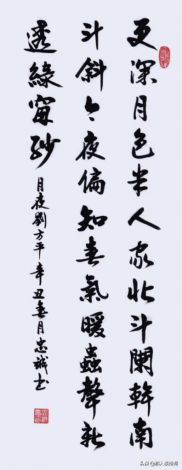 更深月色半人家北斗闌幹南
斗斜今夜偏知春氣暖蟲聲新
透綠窗紗
月夜劉方平辛丑春月忠誠书